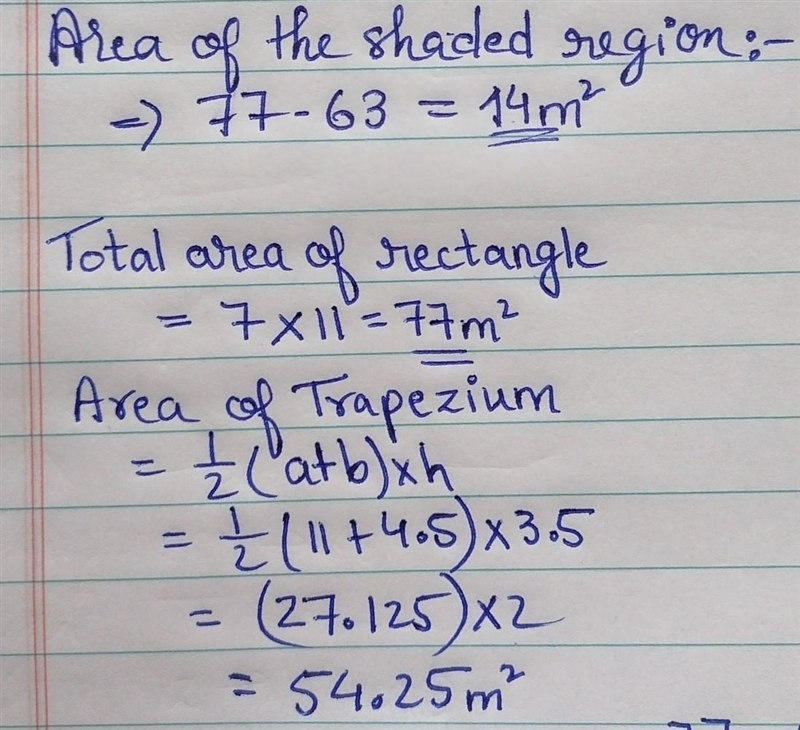 Area of the shaded region:-
⇒ 77-63 = 14m²
Total area of rectangle
= 7 × 11 = 77m²
Area of Trapezium
= 1/2 (a+b)×h
= 1/2 (11+4.5)×3.5
= (27.125)×2
= 54.25m²